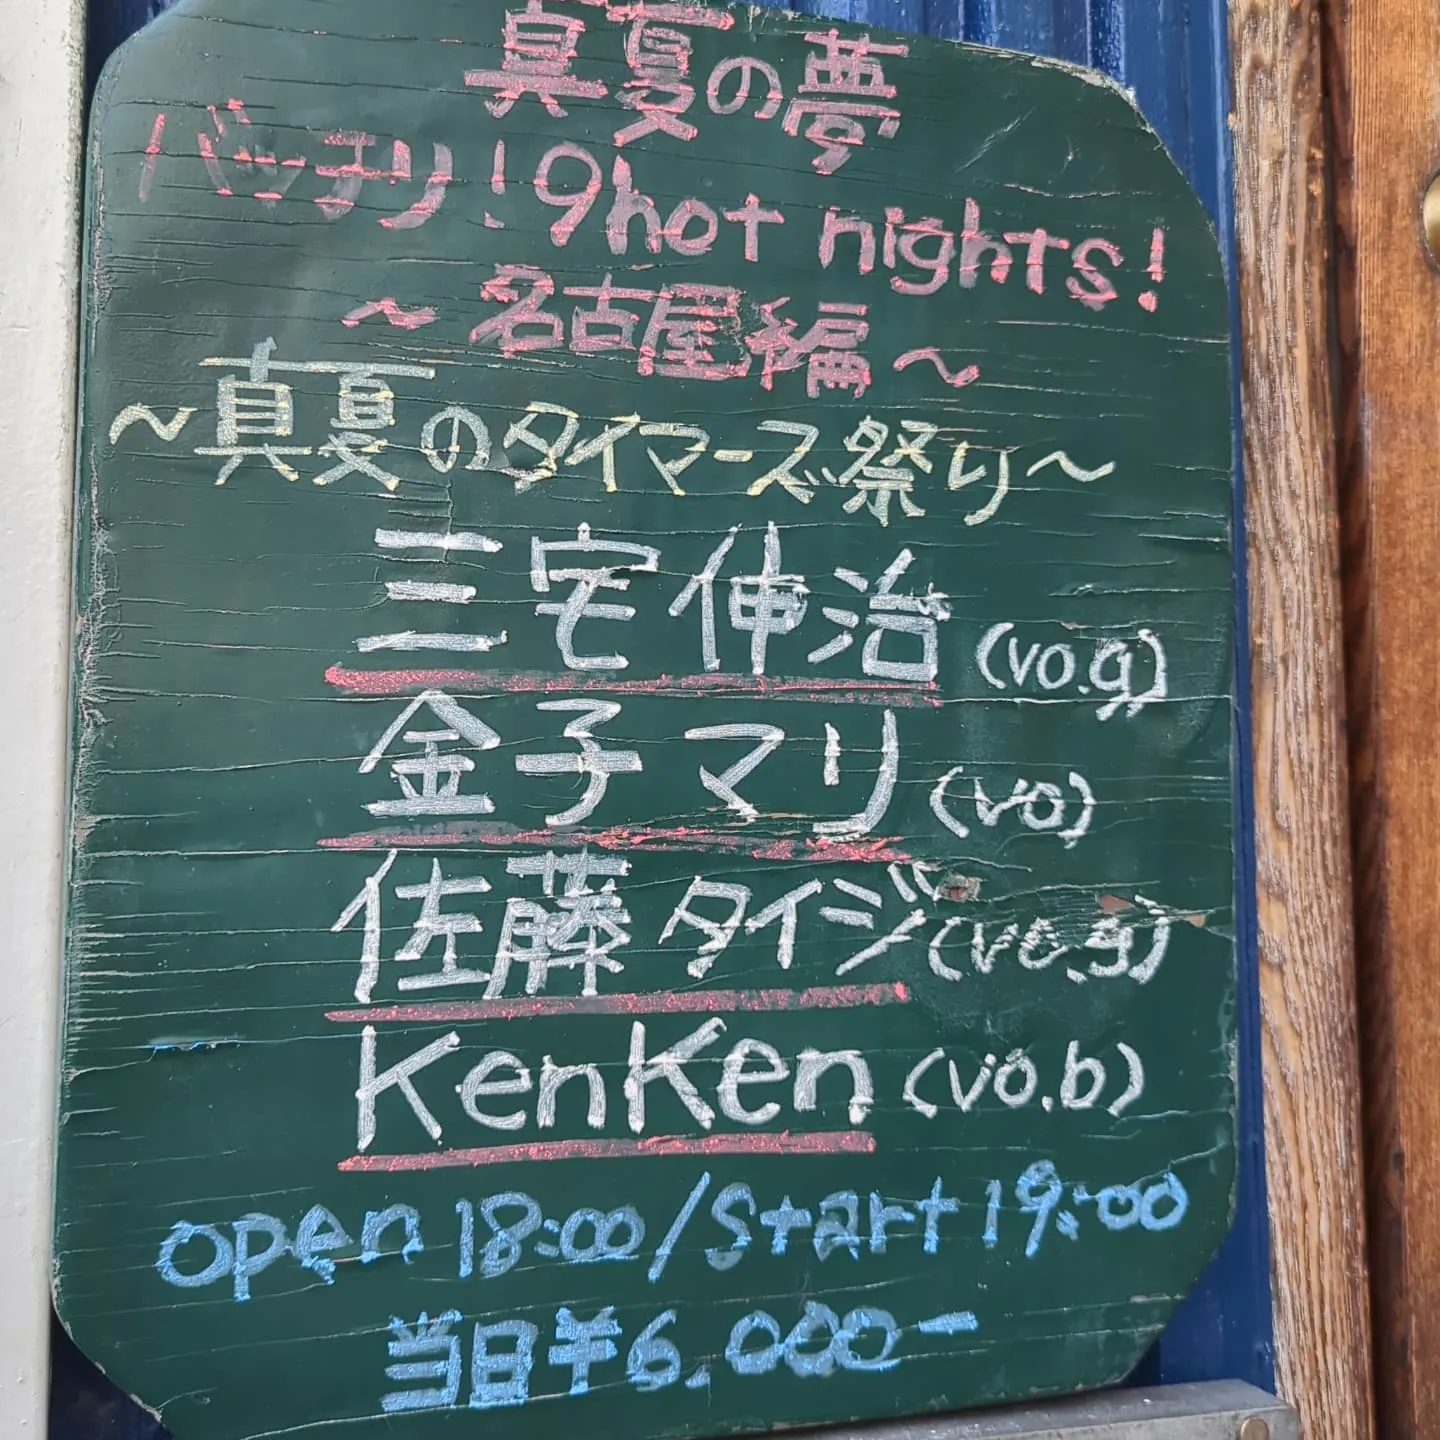 真夏の夢
バッチリ!9hot nights!
～名古屋編～
～真夏のタイマーズ祭り～
三宅伸治(vo.g)
金子マリ(vo)
佐藤タイジ(vo.g)
KenKen(vo.b)
open 18:00/start 19:00
当日¥6.000-